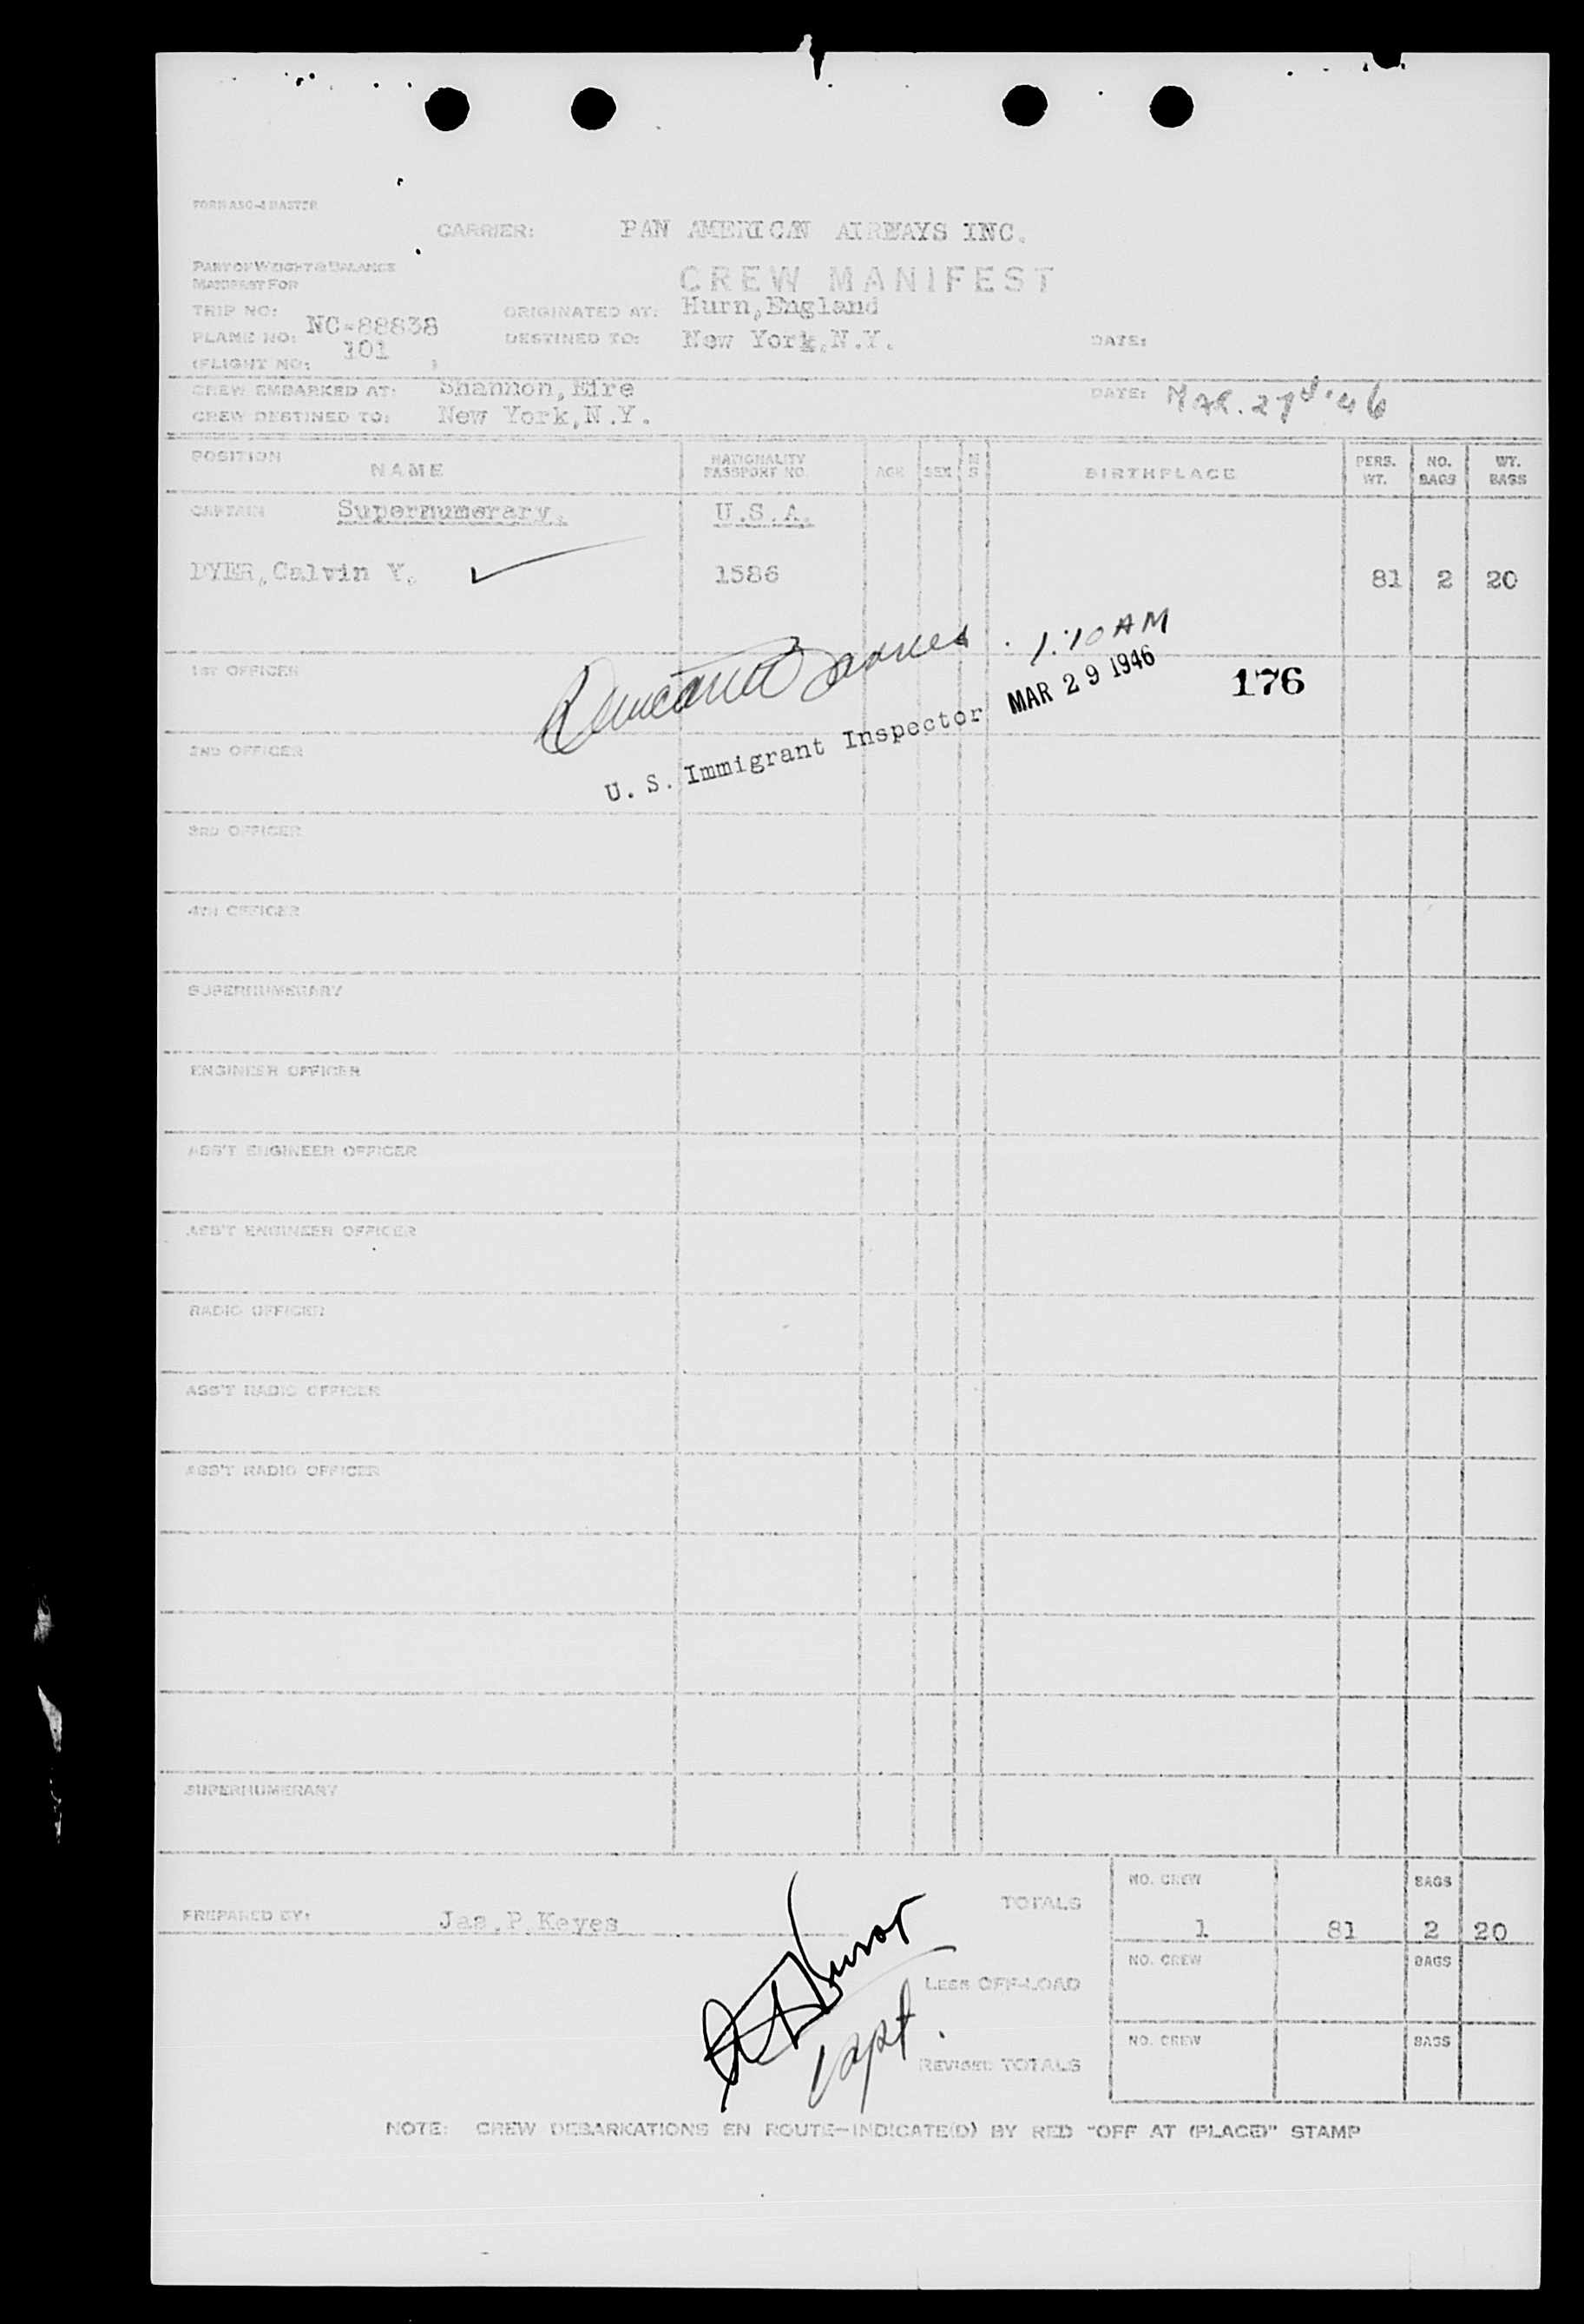 FORM ASO-4 MASTER
CARRIER: PAN AMERICAN AIRWAYS INC.
PART OF WEIGHT & BALANCE
MANIFEST FOR
CREW MANIFEST
TRIP NO: ORIGINATED AT: Hurn,England
PLANE NO: NC-88838 DESTINED TO: New York,N.Y. DATE:
(FLIGHT NO: 101 )
CREW EMBARKED AT: Shannon,Eire DATE: Mar.
CREW DESTINED TO: New York,N.Y.
POSITION NAME NATIONALITY PASSPORT NO. AGE SEX M S BIRTHPLACE PERS. WT. NO. BAGS WT. BAGS
CAPTAIN Supernumerary. U.S.A.
DYER,Calvin Y. 1586 81 2 20
1:10 AM
1ST OFFICER MAR 29 1946 176
U. S. Immigrant Inspector
2ND OFFICER
3RD OFFICER
4TH OFFICER
SUPERNUMERARY
ENGINEER OFFICER
ASS'T ENGINEER OFFICER
ASS'T ENGINEER OFFICER
RADIO OFFICER
ASS'T RADIO OFFICER
ASS'T RADIO OFFICER
SUPERNUMERARY
NO. CREW BAGS
PREPARED BY: Jas.P.Keyes TOTALS 1 81 2 20
NO. CREW BAGS
LESS OFF-LOAD
Capt.
NO. CREW BAGS
REVISED TOTALS
NOTE: CREW DEBARKATIONS EN ROUTE—INDICATE(D) BY RED "OFF AT (PLACE)" STAMP